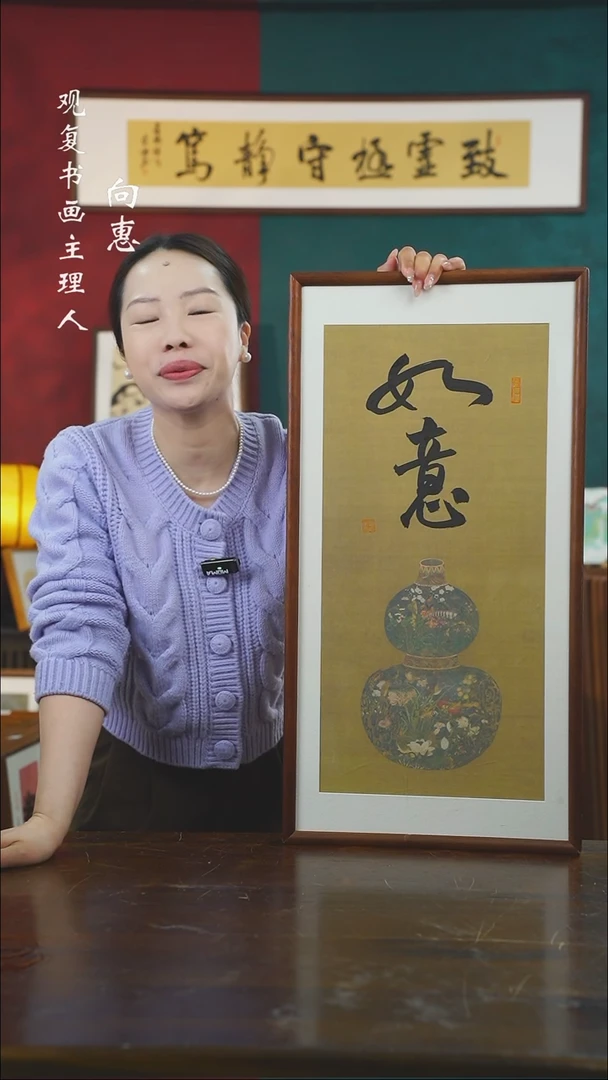 致虚極守静篤
观复书画主理人
向惠
如意